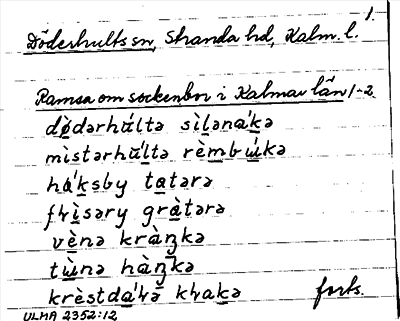 1.
Döderhults sn, Stranda hd, Kalm. l.
Ramsa om sockenbor i Kalmar län 1-2.
dødərhúltə sìlənákə
mìstərhúltə rèmbúkə
háksby tatərə
frìsəry gràtərə
vènə kràŋkə
tùnə hàŋkə
krèstdálə krakə forts.
ULMA 2352:12